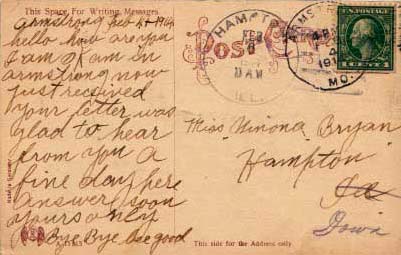 This Space For Writing Messages.
Armstrong Feb 4 19
hello how are you
I am I am in
armstrong now
just received
your letter was
glad to hear
from you a
fine day here
answer soon
yours only
Bye Bye be good
Made in Germany
POST
HAMPTON
FEB
AM
ARMSTRONG
4
191
MO.
U.S. POSTAGE
1 CENT 1
Miss Winona Bryan
Hampton
Ia
Iowa
This side for the Address only